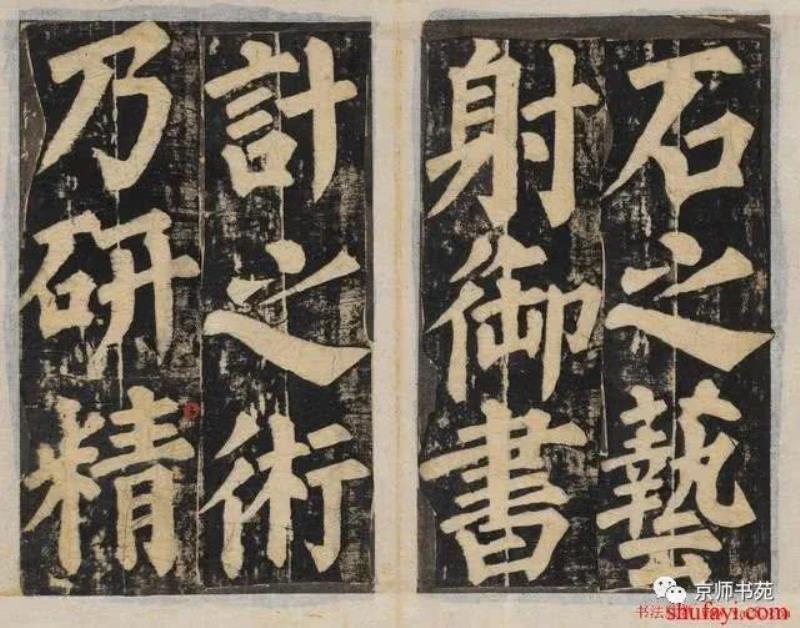 石之藝
射御書
計之術
乃研精
京师书苑
shufayi.com